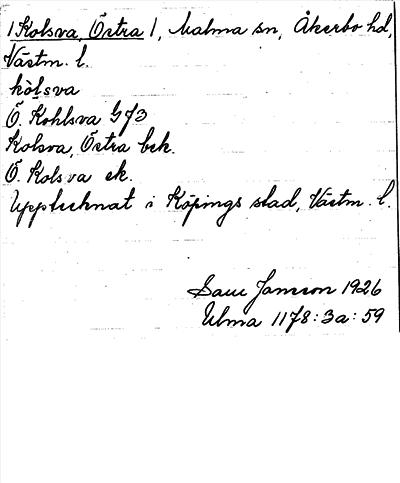 /Kolsva, Östra/, Malma sn, Åkerbo hd,
Västm. l.
kòlsva
Ö. Kohlsva G f3
Kolsva, Östra bek.
Ö. Kolsva ek.
Upptecknat i Köpings stad, Västm. l.
Sam Jansson 1926
Ulma 1178:3a:59